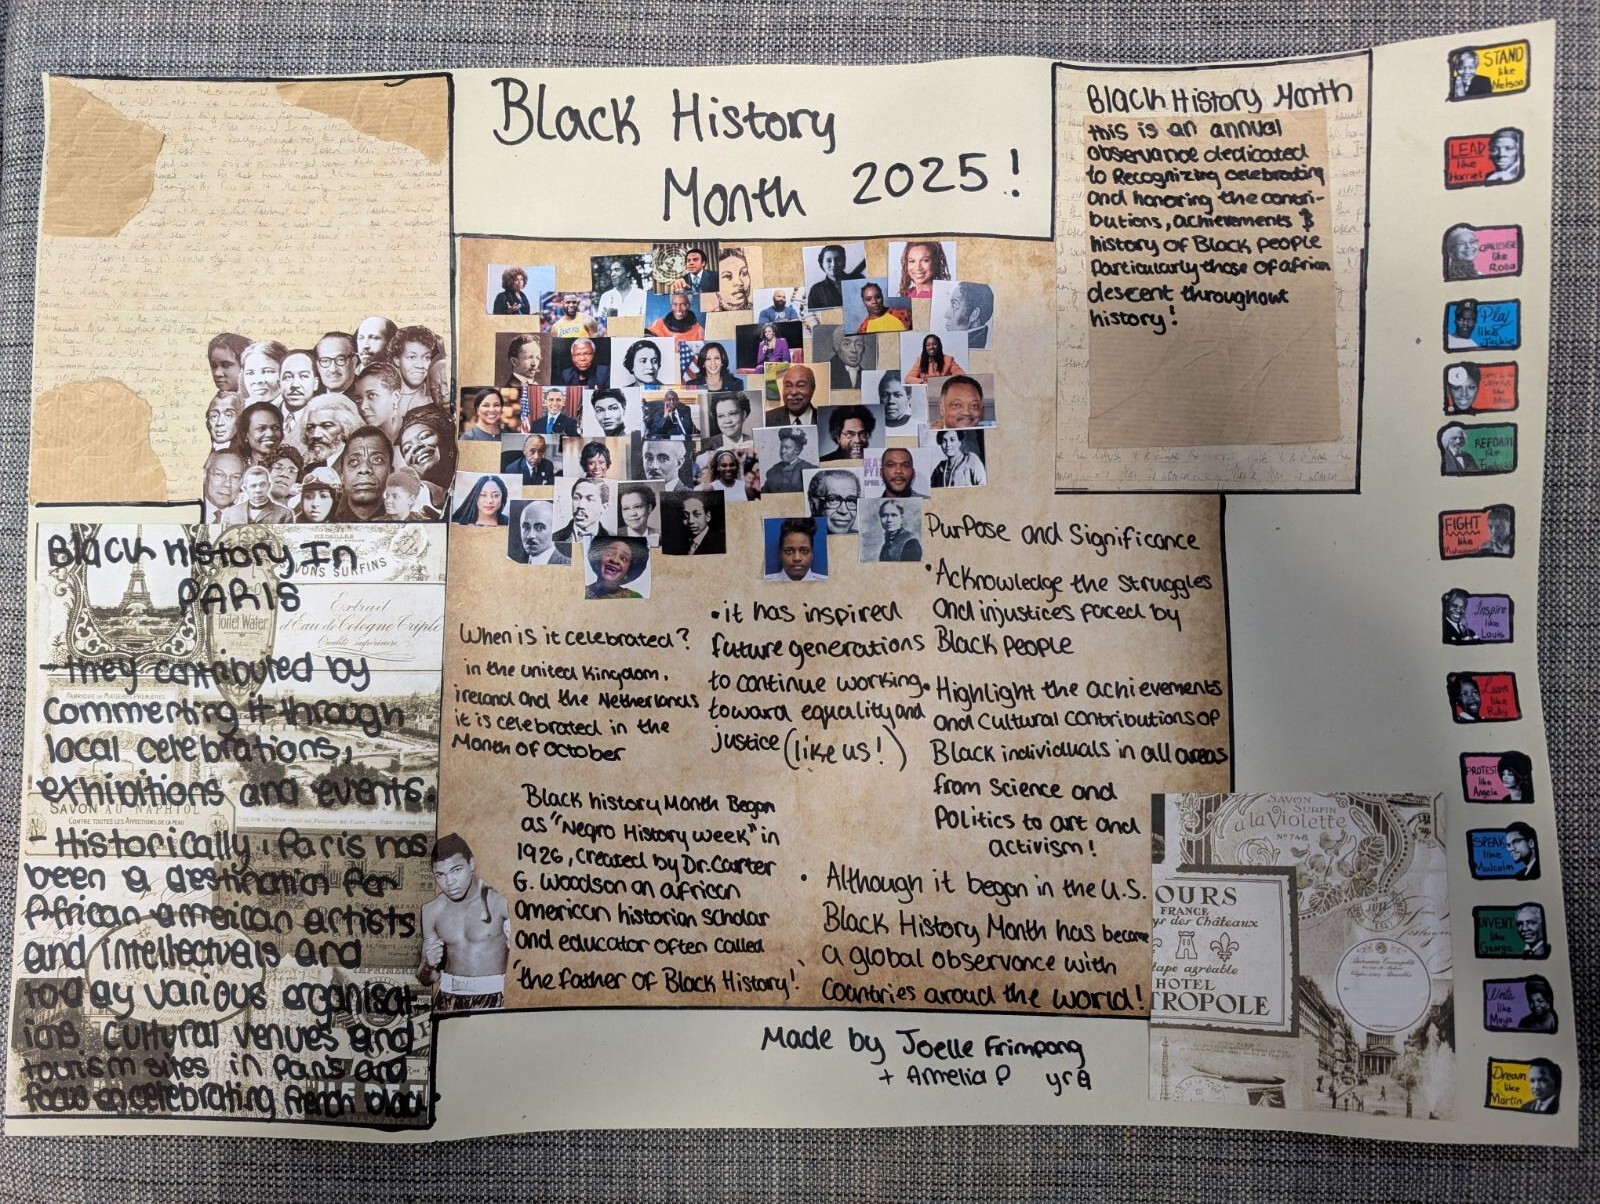 Black History
Month 2025!
Black History Month
this is an annual
observance dedicated
to Recognizing celebrating
and honoring the contri-
butions, achievements &
history of Black people
Particularly those of african
descent throughout
history!
STAND
like
Nelson
LEAD
like
Harriet
like
Rosa
Play
like
Jackie
like
FIGHT
like
Muhammad
Inspire
like
Louis
Learn
like
Ruby
PROTEST
like
Angela
SPEAK
like
Malcolm
INVENT
like
George
Write
like
Maya
Dream
like
Martin
Black History In
PARIS
- they contributed by
Commerting it through
local celebrations,
exhibitions and events.
- Historically, Paris has
been a destination for
African-american artists
and intellectuals and
today various organisat-
ions cultural venues and
tourism sites in paris and
focus on celebrating french black
When is it celebrated?
in the united Kingdom,
ireland and the Netherlands
it is celebrated in the
Month of October
• it has inspired
future generations
to continue working
toward equality and
justice (like us!)
Purpose and Significance
• Acknowledge the struggles
and injustices faced by
Black people
• Highlight the achievements
and cultural contributions of
Black individuals in all areas
from Science and
Politics to art and
activism!
Black history Month Began
as "Negro History week" in
1926, created by Dr. Carter
G. Woodson an african
american historian scholar
and educator often called
'the father of Black History!'
• Although it began in the U.S.
Black History Month has become
a global observance with
countries aroud the world!
Made by Joelle Frimpong
+ Amelia P yr 9
MEDAILLES
VONS SURFINS
Extrait
d'Eau de Cologne Triple
Qualité supérieure
Toilet Water
SAVON AU NAPHTOL
CONTRE TOUTES LES AFFECTIONS DE LA PEAU
SAVON
SURFIN
à la Violette
Nº 748
OURS
FRANCE
des Châteaux
tape agréable
HOTEL
TROPOLE